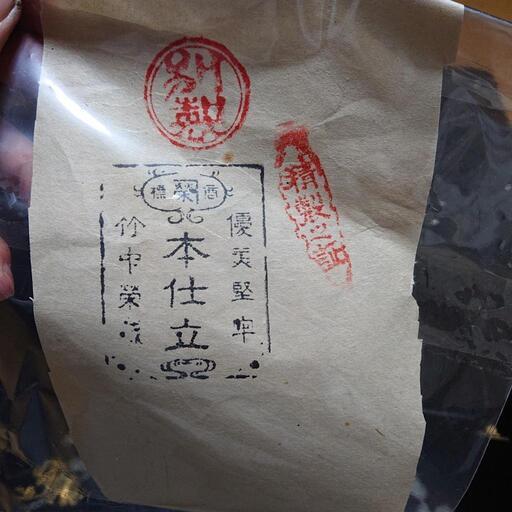 別製
精製之証
商標
栄
優美堅牢
本仕立
竹中榮